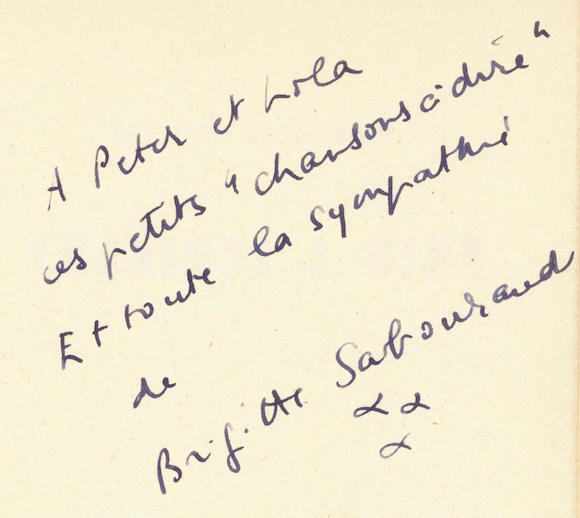 A Peter et Lola
ces petits "chansons à dire"
Et toute la sympathie
de
Brigitte Sabouraud